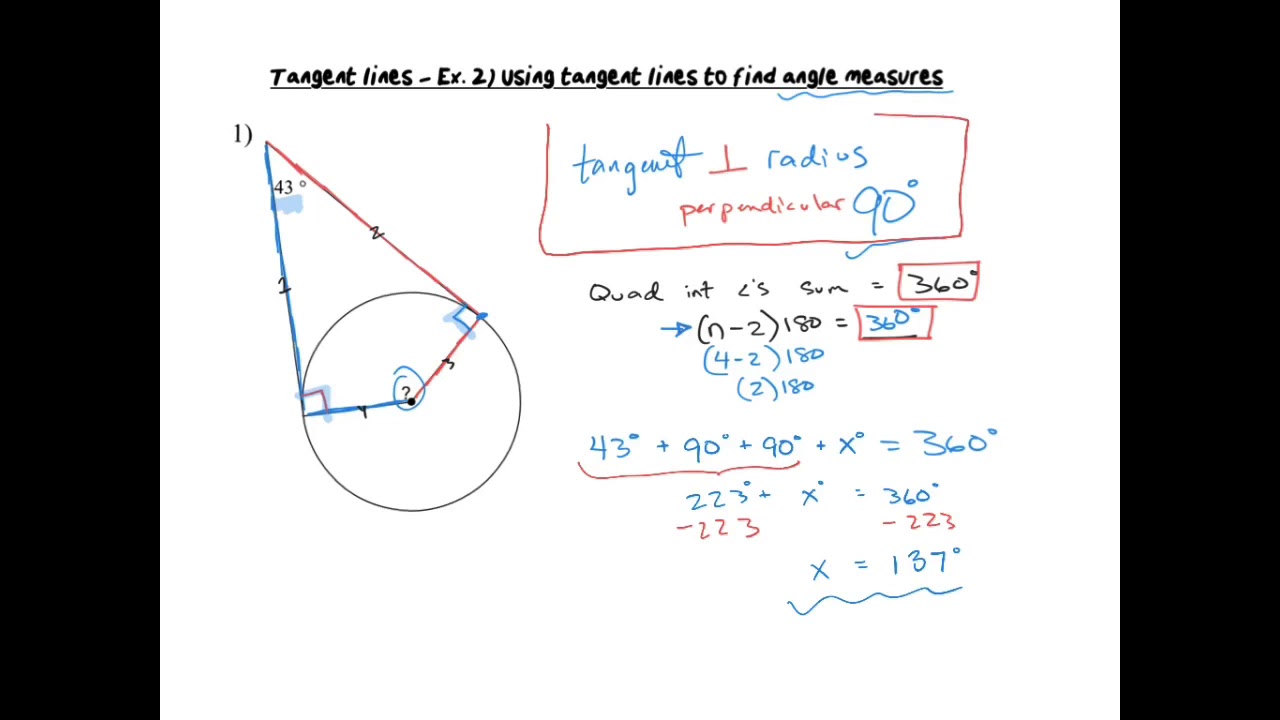 Tangent lines - Ex. 2) Using tangent lines to find angle measures
1)
43 °
2
1
3
4
?
tangent ⊥ radius
perpendicular 90°
Quad int <'s sum = 360°
→ (n-2)180 = 360°
(4-2)180
(2)180
43° + 90° + 90° + x° = 360°
223° + x° = 360°
-223 -223
x = 137°